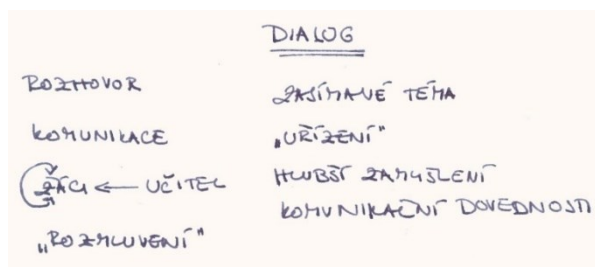 DIALOG
ROZHOVOR
KOMUNIKACE
ŽÁCI ← UČITEL
„ROZMLUVENÍ"
ZAJÍMAVÉ TÉMA
„UŘÍZENÍ"
HLUBŠÍ ZAMYŠLENÍ
KOMUNIKAČNÍ DOVEDNOSTI